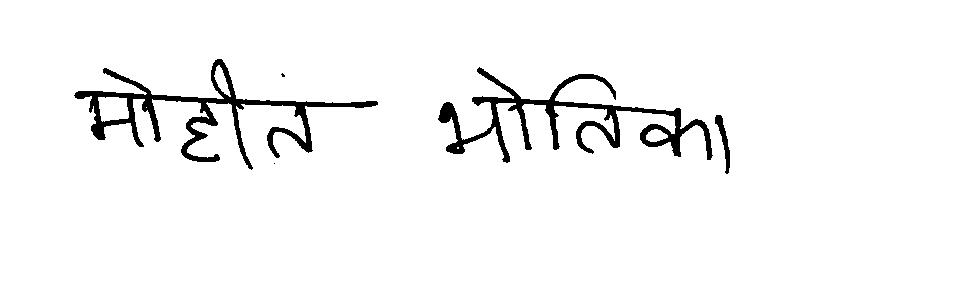 मोहीतं भोतिका